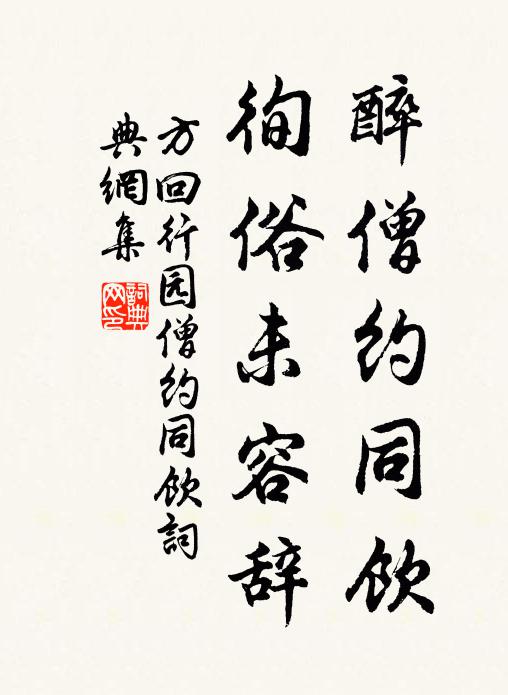 醉僧约同饮
徇俗未容辞
方回行园僧约同饮詞
典網集
詞典网印